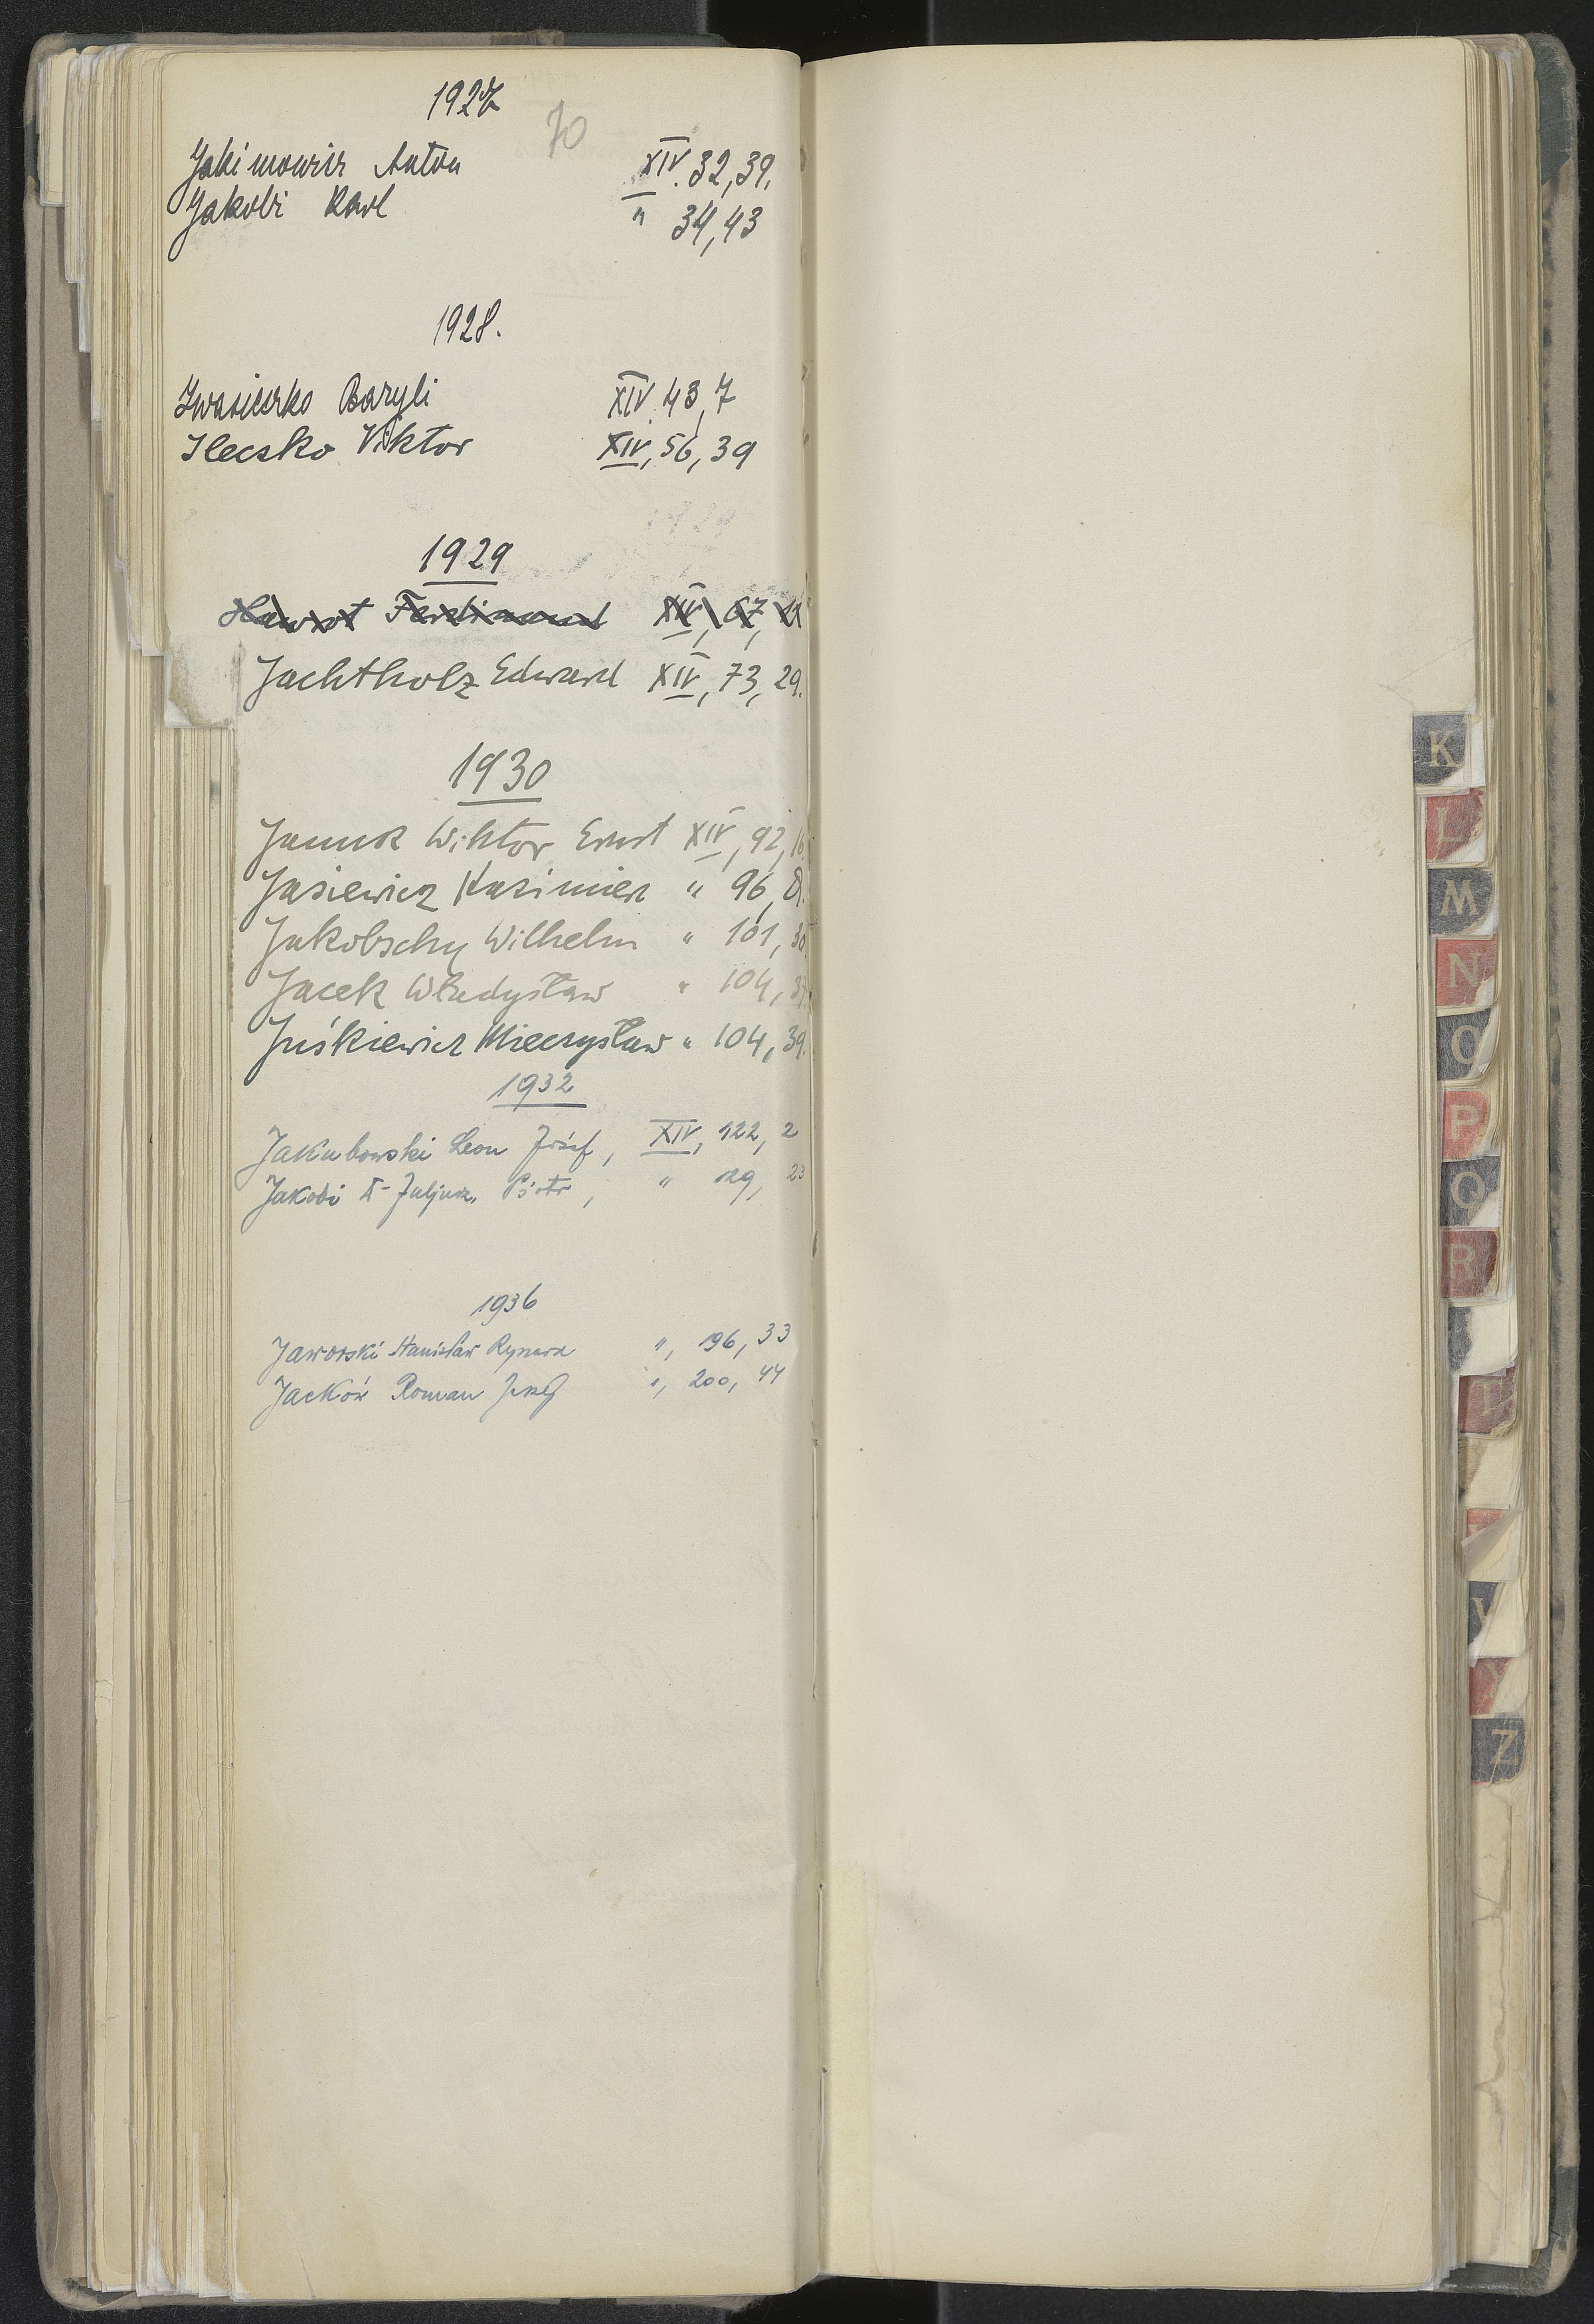 1927
70
Jakimowicz Anton XIV. 32, 39.
Jakobi Karl " 34, 43
1928.
Iwasieczko Bazyli XIV. 43, 7
Ileczko Viktor XIV, 56, 39
1929
Hawrot Ferdinand XIV, 67,
Jachtholz Edward XIV, 73, 29.
1930
Wiktor Ernst XIV, 92, 16
Jasiewicz Kasimierz " 96, 9.
Jakobschy Wilhelm " 101, 30
Jacek Władysław " 104,
Juśkiewicz Mieczysław " 104, 39.
1932
Jakubowski Leon Józef, XIV, 122, 2
Jakobi Juljusz, Piotr, " 129, 23
1936
Jaworski Stanisław Ryszard ", 196, 33
Jacków Roman Józef ", 200, 44
K
L
M
N
O
P
Q
R
T
Z